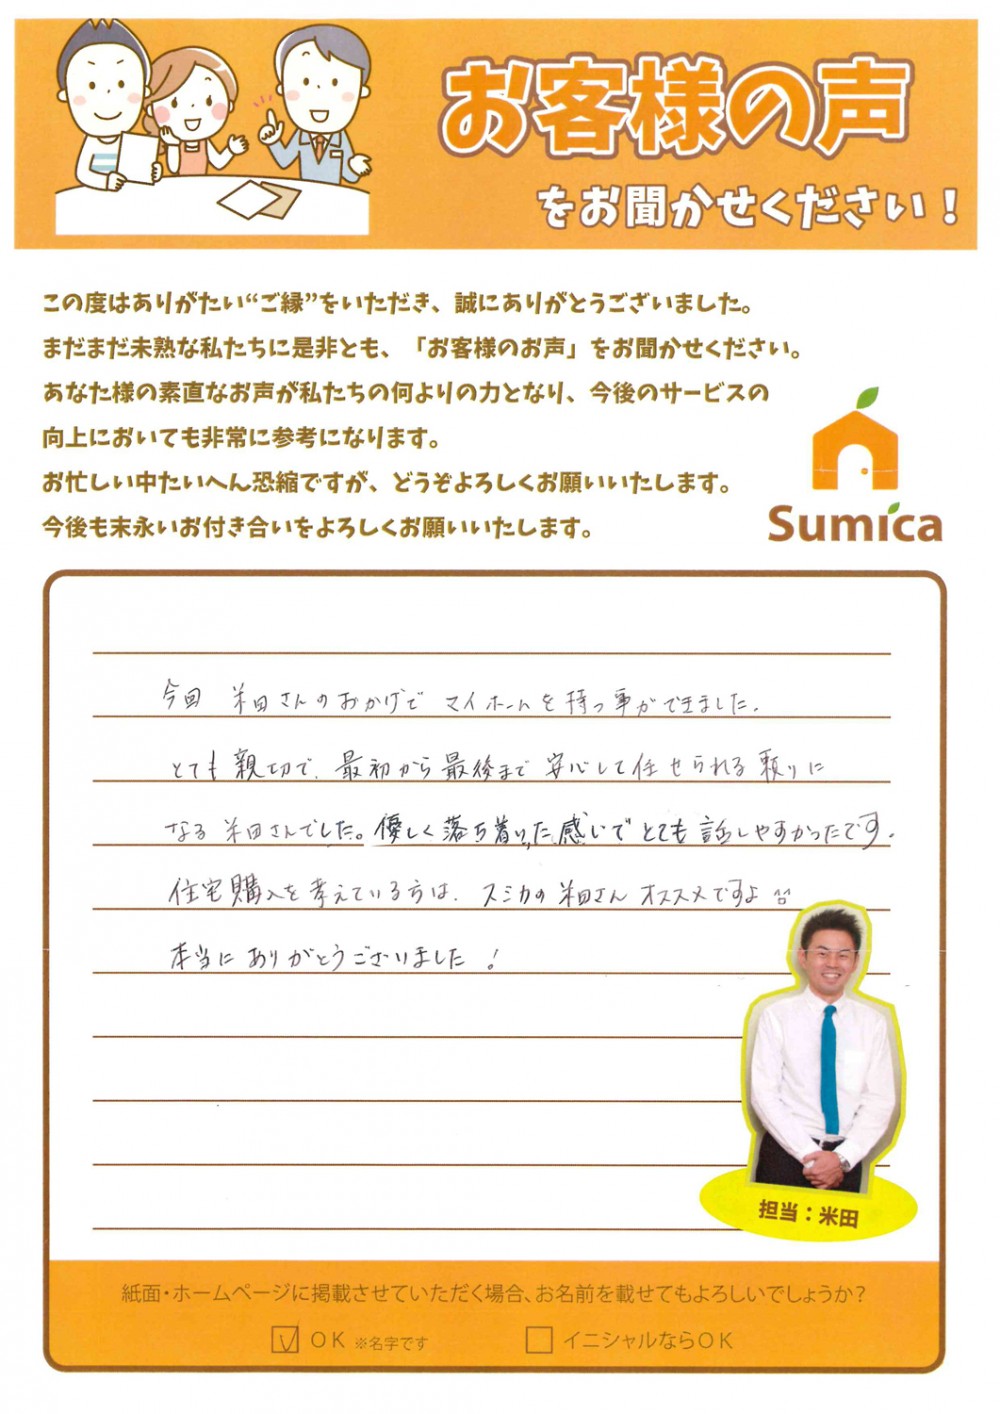 お客様の声
をお聞かせください！
この度はありがたい“ご縁”をいただき、誠にありがとうございました。
まだまだ未熟な私たちに是非とも、「お客様のお声」をお聞かせください。
あなた様の素直なお声が私たちの何よりの力となり、今後のサービスの
向上においても非常に参考になります。
お忙しい中たいへん恐縮ですが、どうぞよろしくお願いいたします。
今後も末永いお付き合いをよろしくお願いいたします。
Sumica
今回 米田さんのおかげで マイホームを持つ事ができました。
とても親切で、最初から最後まで 安心して任せられる頼りに
なる 米田さんでした。優しく落ち着いた感じでとても話しやすかったです。
住宅購入を考えている方は、スミカの米田さんオススメですよ^^
本当にありがとうございました！
担当：米田
紙面・ホームページに掲載させていただく場合、お名前を載せてもよろしいでしょうか？
☑ OK ※名字です □ イニシャルならOK